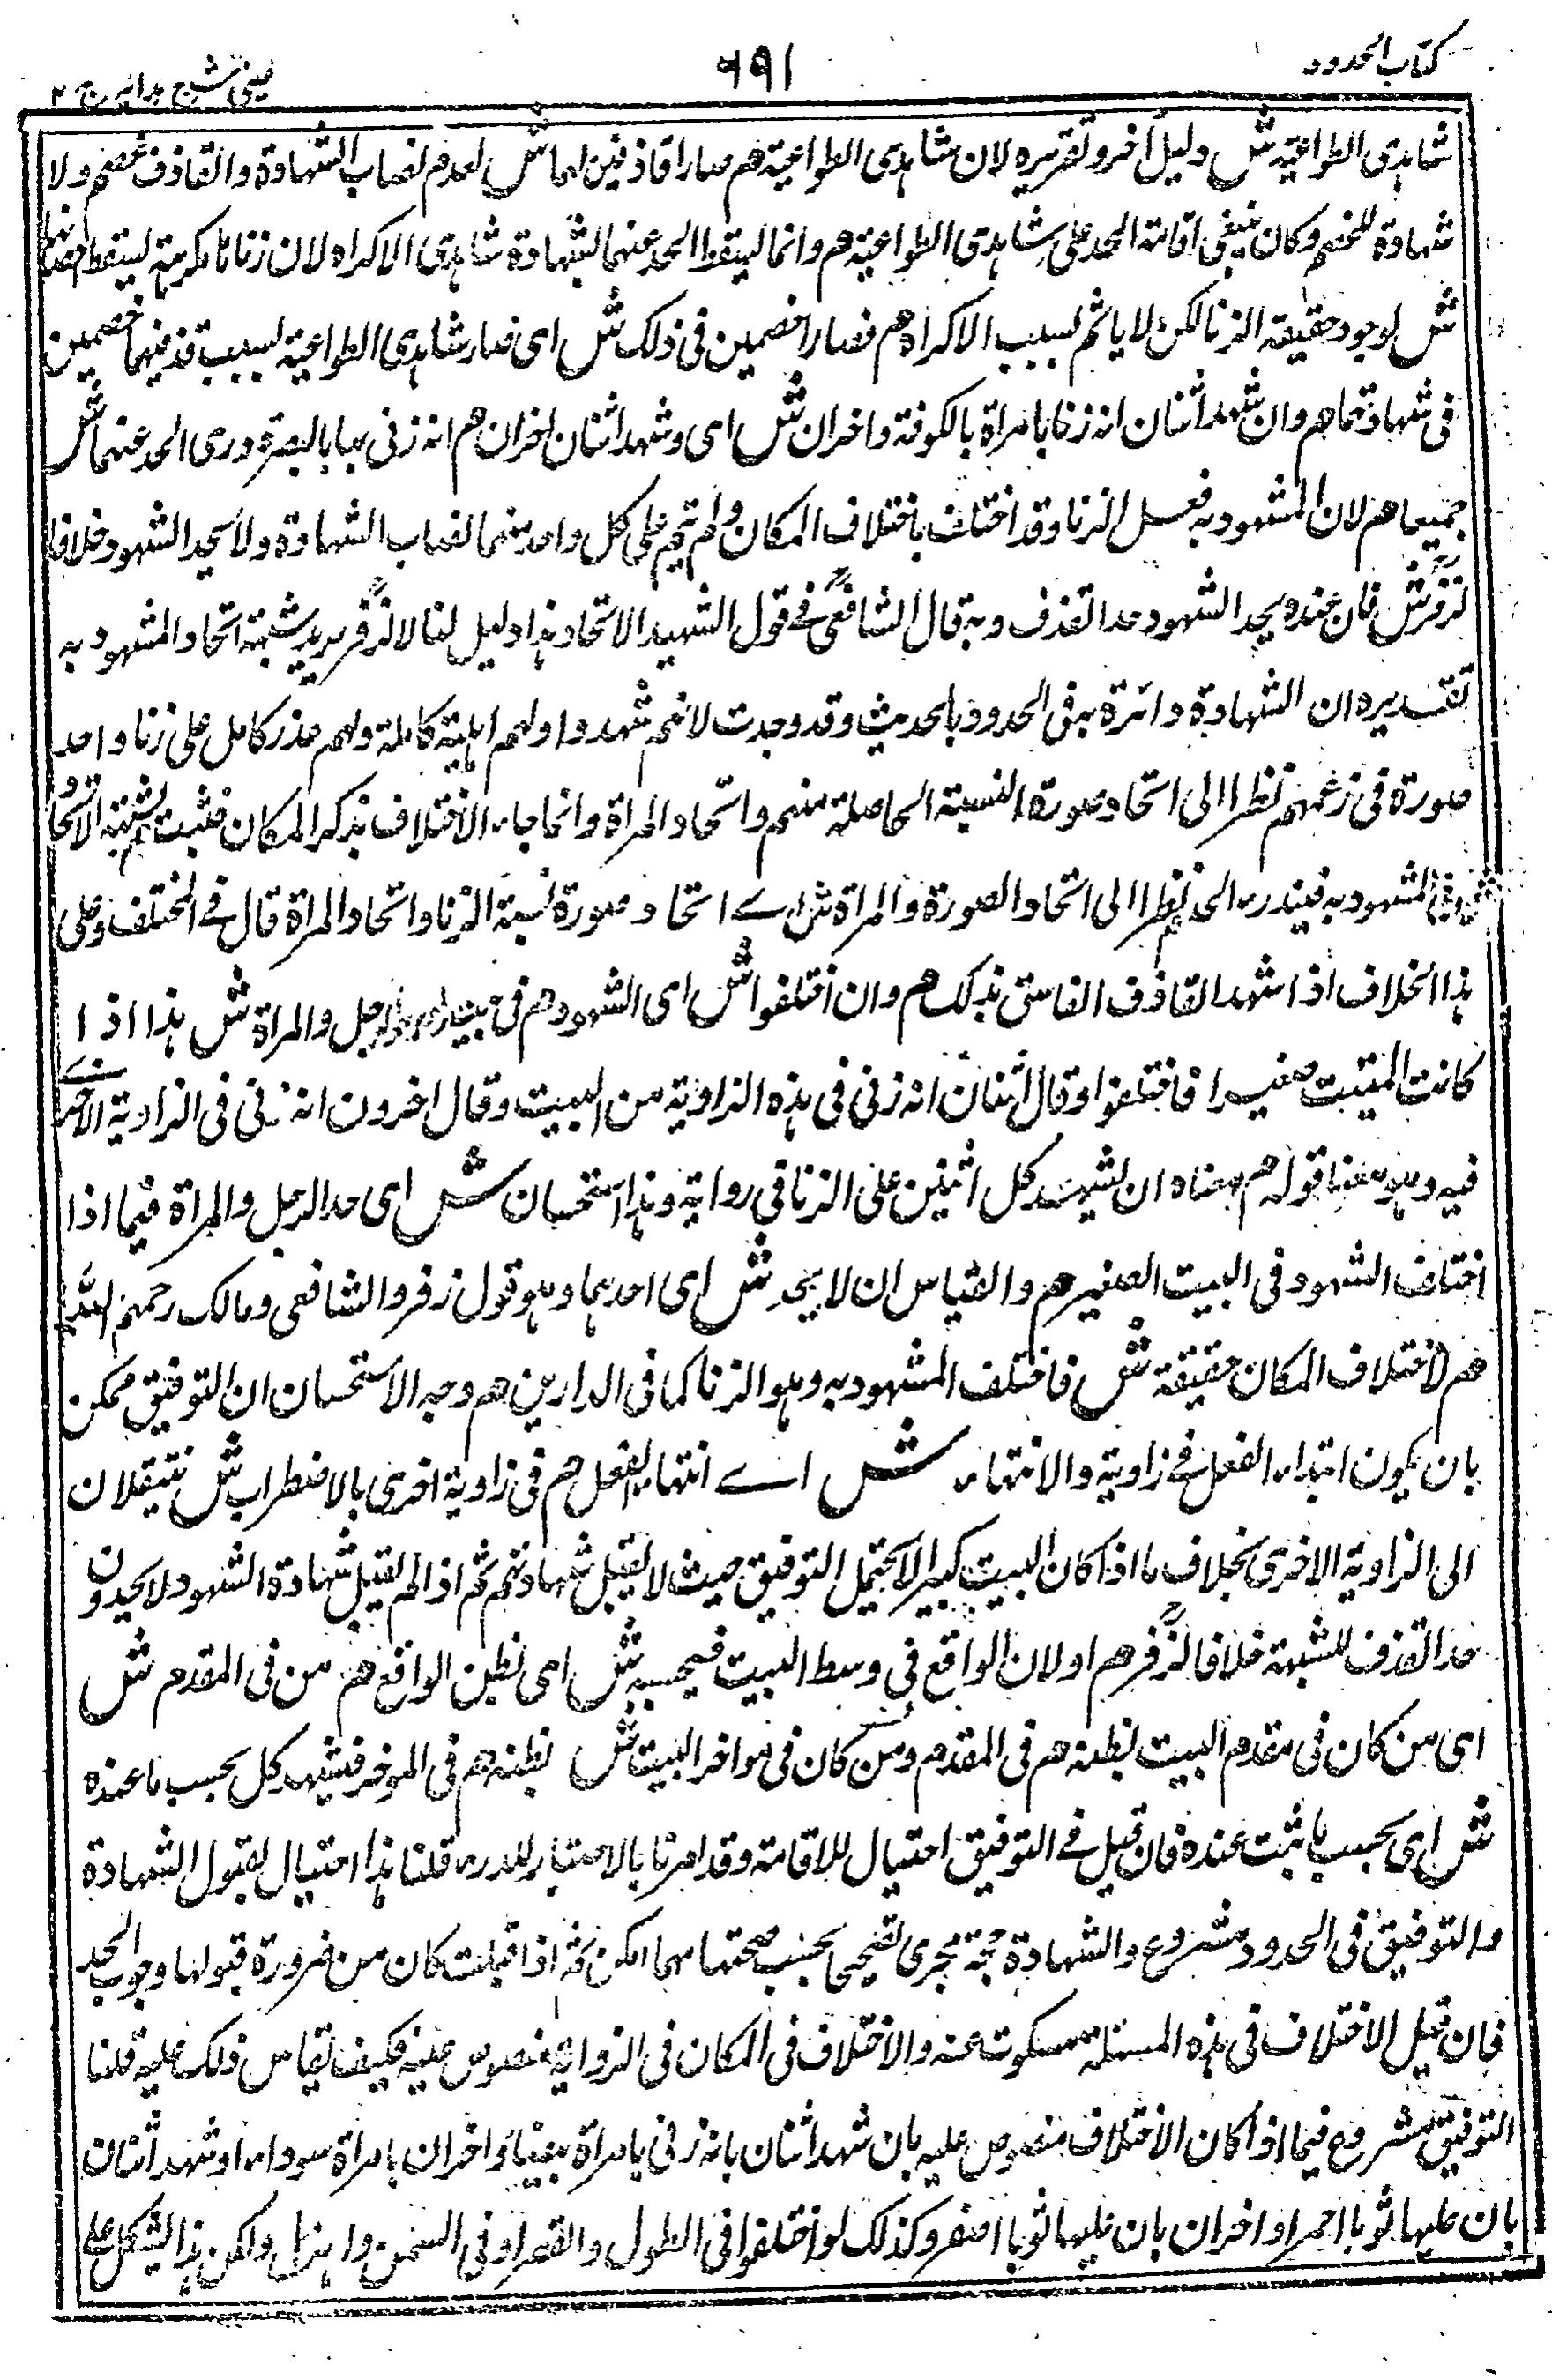 كتاب الحدود
٦٩١
عينى شرح هدايه ج ٢
شاهدى الطواعية ش دليل آخر وتقريره لان شاهدى الطواعية هم صارا قاذفين لهما ش لعدم نصاب الشهادة والقاذف خصم ولا
شهادة للخصم وكان ينبغى اقامة الحد على شاهدى الطواعية هم وانما يسقط الحد عنهما لشهادة شاهدى الاكراه لان زناها مكرهة يسقط احصانها
ش لوجود حقيقة الزنا لكن لا ياثم بسبب الاكراه هم فصارا خصمين فى ذلك ش اى فصار شاهدى الطواعية بسبب قذفيهما خصمين
فى شهادتهما هم وان شهد اثنان انه زنا بامراة بالكوفة واخران ش اى وشهد اثنان اخران هم انه زنى بها بالبصرة درى الحد عنهما ش
جميعا هم لان المشهود به فعل الزنا وقد اختلف باختلاف المكان ولم يتم على كل واحد منهما نصاب الشهادة ولا يحد الشهود خلافا
لزفر ش فان عنده يحد الشهود حد القذف وبه قال الشافعى فى قول الشهيد الاتحاد هذا دليل لنا لا لزفر يريد شبهة اتحاد المشهود به
تقديره ان الشهادة دائرة فى الحدود بالحديث وقد وجدت لانهم شهدوا ولهم اهلية كاملة ولهم عذر كامل على زنا واحد
صورة فى زعمهم نظرا الى اتحاد صورة النسبة الحاصلة منهم واتحاد المراة وانما جاء الاختلاف بذكر المكان فثبت شبهة الاتحاد
فى المشهود به فيندرء الحد نظرا الى اتحاد الصورة والمراة ش اے اتحاد صورة نسبة الزنا واتحاد المراة قال فى المختلف وعلى
هذا الخلاف اذا شهد القاذف الفاسق بذلك هم وان اختلفوا ش اى الشهود هم فى بيت واحد حد الرجل والمراة ش هذا اذا
كانت البيت صغيرا فاختلفوا وقال اثنان انه زنى فى هذه الزاوية من البيت وقال اخرون انه زنى فى الزاوية الاخرى
فيه وهو معنا قوله هم معناه ان يشهد كل اثنين على الزنا فى رواية وهذا استحسان ش اى حد الرجل والمراة فيما اذا
اختلف الشهود فى البيت الصغير هم والقياس ان لا يحد ش اى احدهما وهو قول زفر والشافعى ومالك رحمهم الله
هم لاختلاف المكان حقيقة ش فاختلف المشهود به وهو الزنا كما فى الدارين هم وجه الاستحسان ان التوفيق ممكن
بان يكون ابتداء الفعل فى زاوية والانتهاء ش اے انتهاء الفعل هم فى زاوية اخرى بالاضطراب ش ينتقلان
الى الزاوية الاخرى بخلاف ما اذا كان البيت كبيرا لا يحتمل التوفيق حيث لا يقبل شهادتهم ثم اذا لم يقبل شهادة الشهود لا يحدون
حد القذف للشبهة خلافا لزفر هم اولان الواقع فى وسط البيت فيحسبه ش اى يظن الواقع هم من فى المقدم ش
اى من كان فى مقدم البيت يظنه هم فى المقدم ومن كان فى مواخر البيت ش يظنه هم فى الموخر فيشهد كل بحسب ما عنده
ش اى بحسب ما ثبت عنده فان قيل فى التوفيق احتيال للاقامة وقد امرنا بالاحتيال للدرء قلنا هذا احتيال لقبول الشهادة
والتوفيق فى الحدود مشروع والشهادة حجة فجرى تصحيح بحسب صحتها مهما امكن ثم اذا قبلت كان من ضرورة قبولها وجوب الحد
فان قيل الاختلاف فى هذه المسئلة مسكوت عنه والاختلاف فى المكان فى الزوايا منصوص عليه فكيف يقاس ذلك عليه قلنا
التوفيق مشروع فيما اذا كان الاختلاف منصوص عليه بان شهد اثنان بانه زنى بامراة بيضاء واخران بامراة سوداء او شهد اثنان
بان عليها ثوبا احمرا واخران بان عليها ثوبا اصفر وكذلك لو اختلفوا فى الطول والقصر او فى السمن واهزال ولكن هذا يشكل على